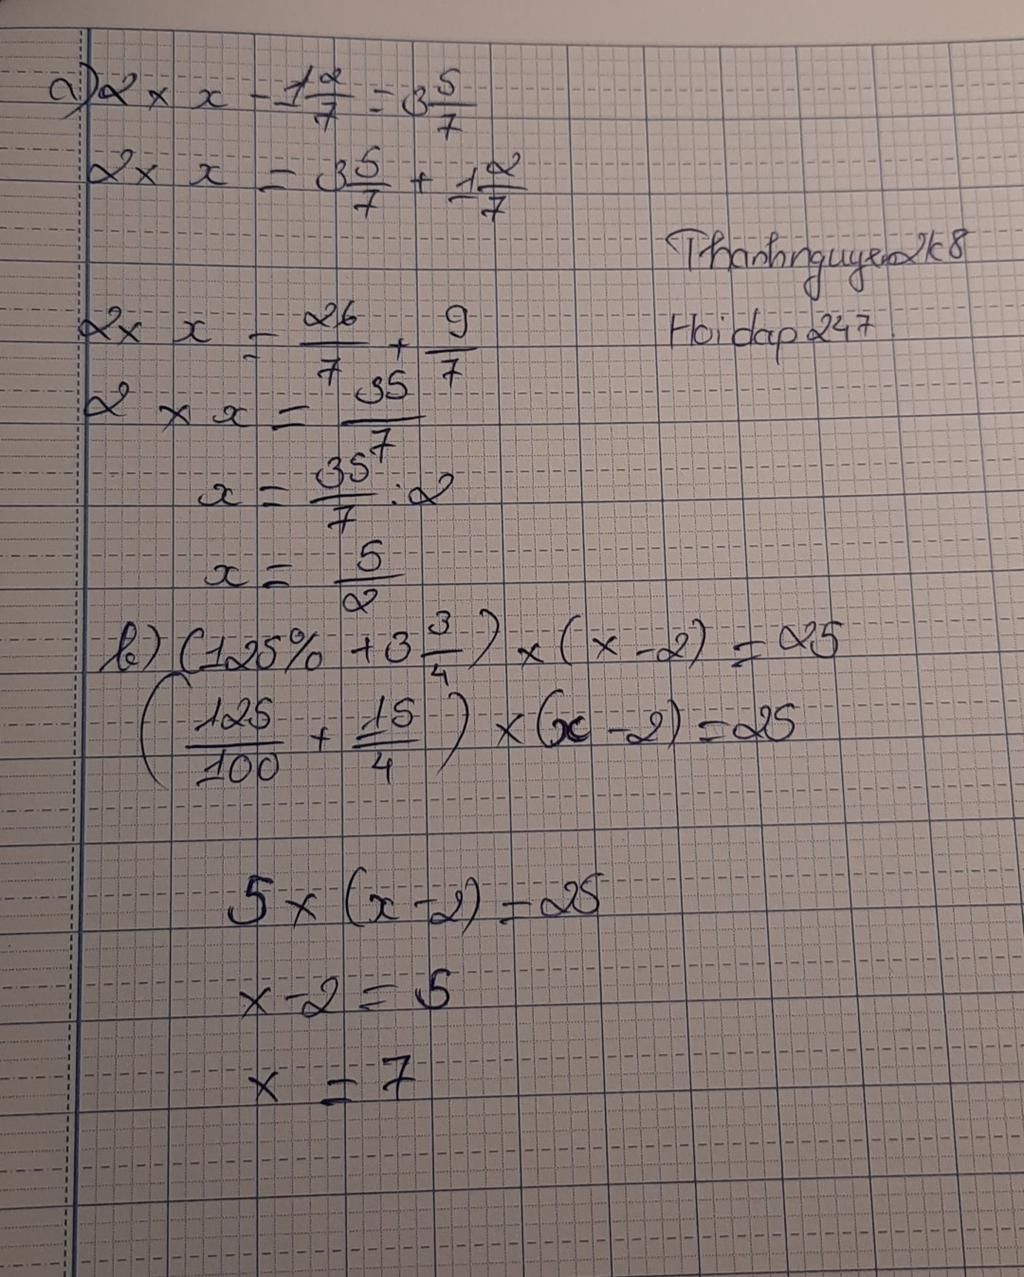 a) 2 × x - 1 2/7 = 3 5/7
2 × x = 3 5/7 + 1 2/7
Thanhnguyen2k8
2 × x = 26/7 + 9/7
Hoidap247
2 × x = 35/7
x = 35/7 : 2
x = 5/2
b) (125% + 3 3/4) × (x - 2) = 25
(125/100 + 15/4) × (x - 2) = 25
5 × (x - 2) = 25
x - 2 = 5
x = 7